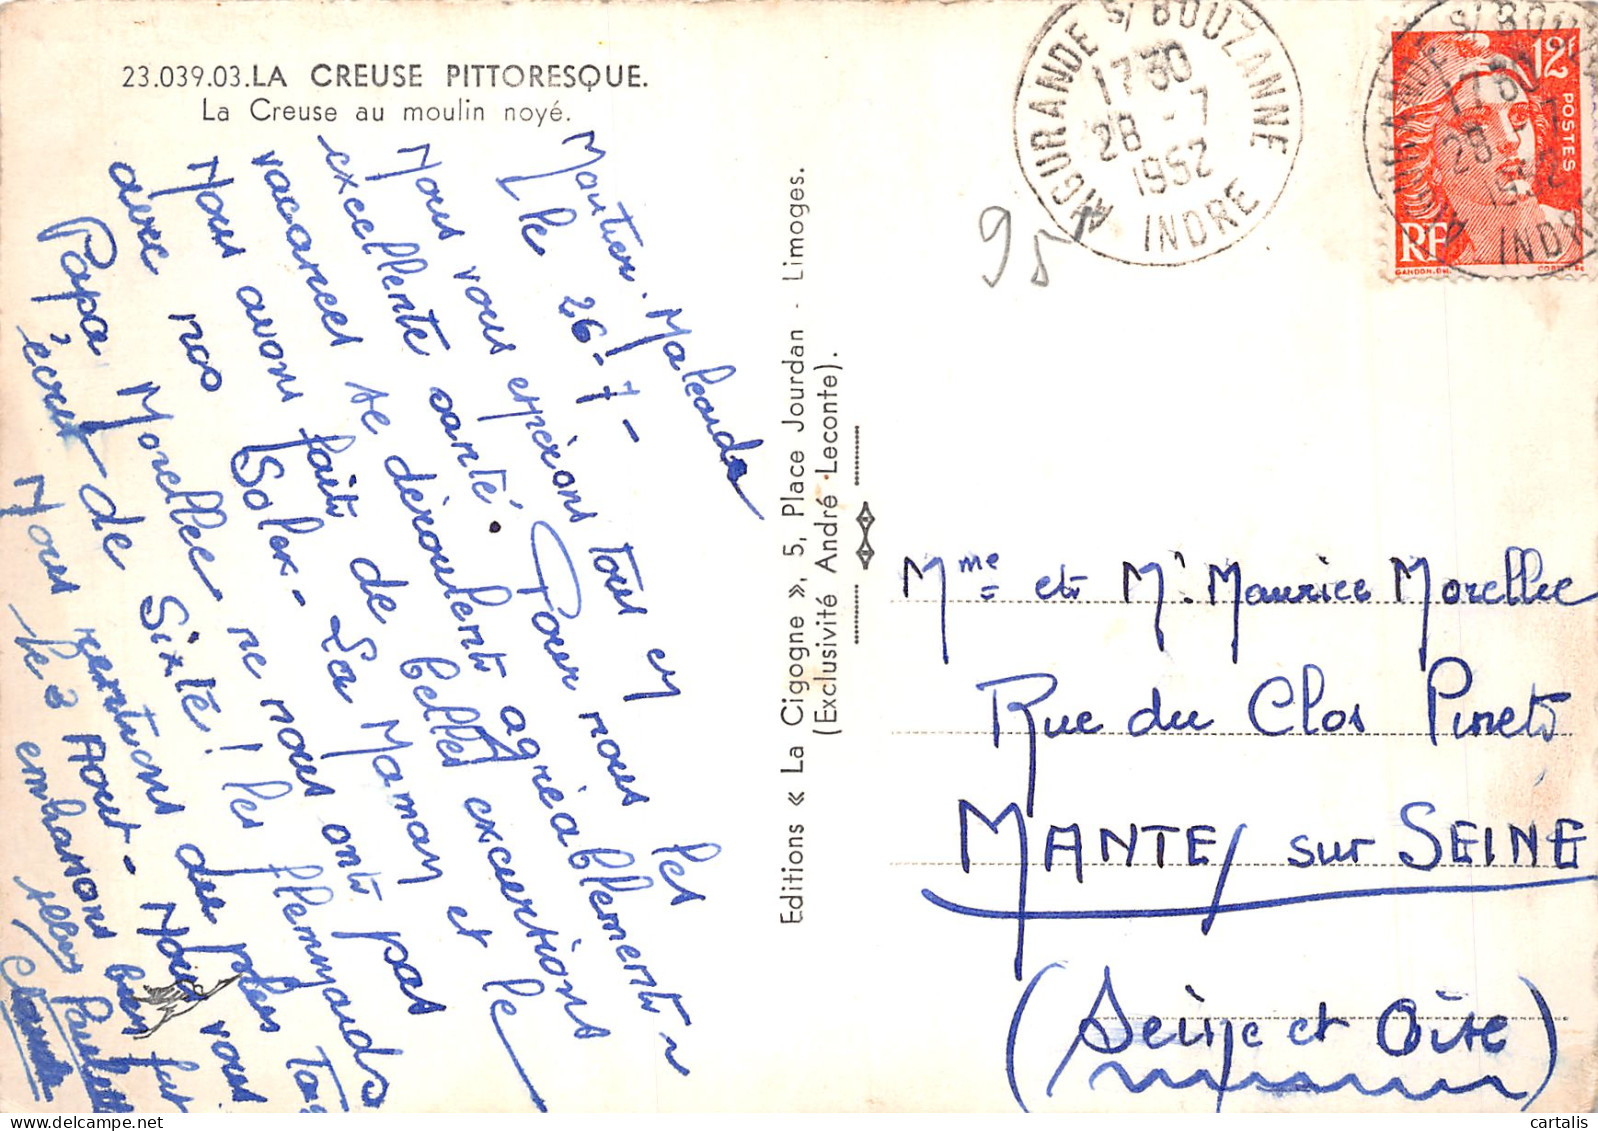 23.039.03. LA CREUSE PITTORESQUE.
La Creuse au moulin noyé.
Moutier-Malcard
Le 26-7-
Nous vous espérons tous en
excellente santé. Pour nous les
vacances se déroulent agréablement
Nous avons faits de belles excursions
avec nos Solex - La Maman et le
Papa Morellec ne nous ont pas
écrit de Sixte! les flemmards
Nous rentrons du plus tar
le 3 Aout - Nous vous
embrassons bien fort
Paulette
Claude
Editions « La Cigogne », 5, Place Jourdan - Limoges.
(Exclusivité André Leconte).
AIGURANDE S/ BOUZANNE
17 30
28 - 7
1952
INDRE
AIGURANDE S/ BOUZANNE
17 30
28 - 7
1952
INDRE
12F
POSTES
RF
GANDON.DEL.
95
Mme et Mr Maurice Morellec
Rue du Clos Pinets
MANTES sur SEINE
(Seine et Oise)
cartalis
delcampe.net